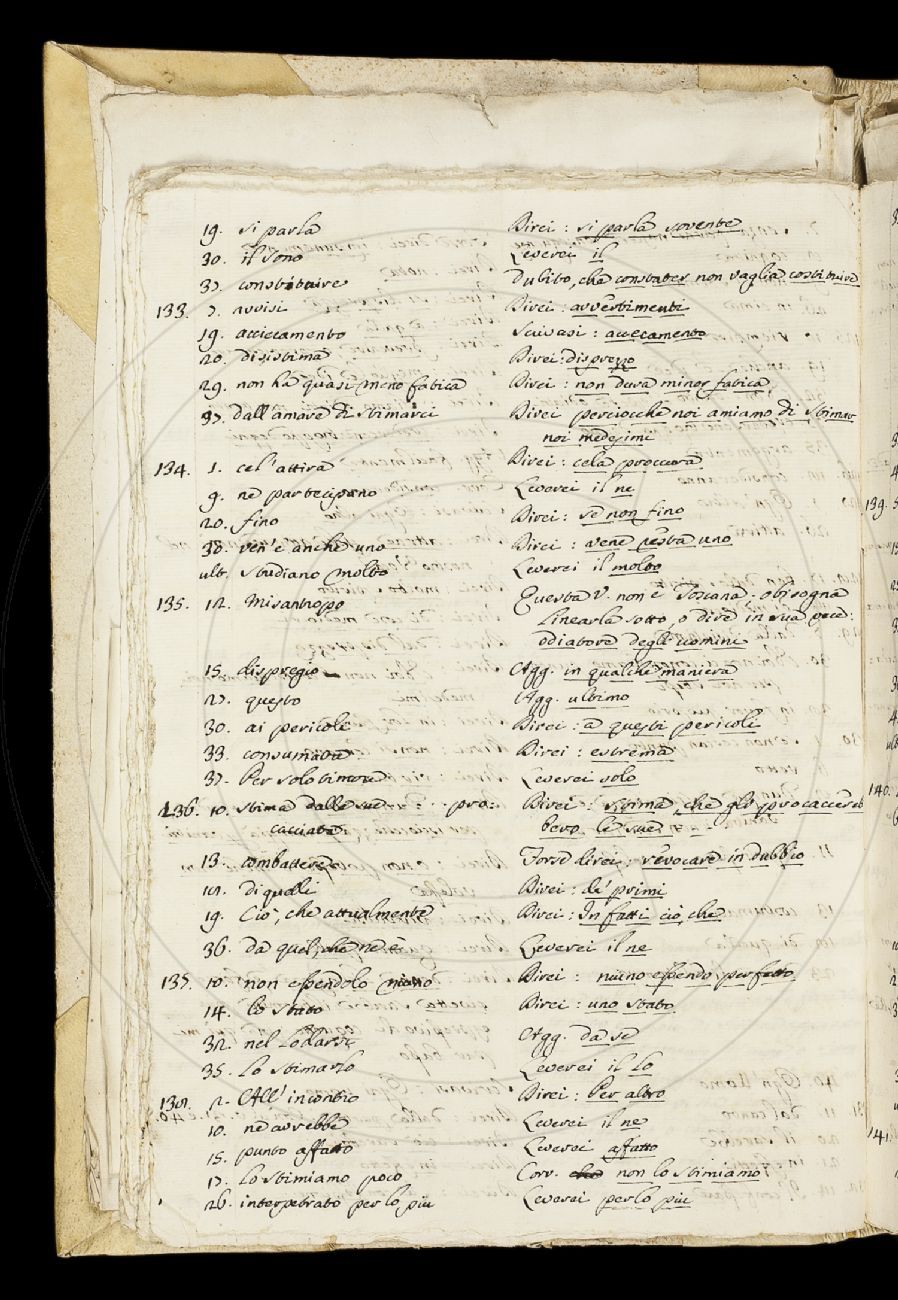 19. si parla Direi: si parla sovente
30. il sono Leverei il
37. constituire Dubito, che constater non vaglia costituire
133. 7. avvisi Direi: avvertimenti
19. acciecamento Scrivasi: accecamento
20. disistima Direi: disprezzo
29. non ha quasi meno fatica Direi: non dura minor fatica
37. dall'amare di stimarci Direi perciocchè noi amiamo di stimar
noi medesimi
134. 1. cel'attira Direi: cela proccura
9. ne partecipano Leverei il ne
20. fino Direi: se non fino
30. ven'è anche uno Direi: vene resta uno
ult. studiano molto Leverei il molto
135. 12. Misantropo Questa V. non è Toscana. obisogna
Linearla sotto, o dire in sua vece:
odiatore degli uomini
15. dispregio Agg. in qualche maniera
27. questo Agg. ultimo
30. ai pericoli Direi: a questi pericoli
33. consumata Direi: estrema
37. Per solo timore Leverei solo
136. 10. stima dalle sue - - - pro: Direi: stima, che gli procaccereb
cacciata bero le sue - -
13. combattere Forse direi: rèvocare in dubbio
18. di quelli Direi: de' primi
19. Ciò, che attualmente Direi: In fatti ciò, che
36. da quel, che ne è Leverei il ne
137. 10. non essendolo niuno Direi: niuno essendo perfetto
14. lo stato Direi: uno stato
32. nel lodarsi Agg. da se
35. Lo stimarlo Leverei il Lo
138. 2. All'incontro Direi: Per altro
10. ne avrebbe Leverei il ne
15. punto affatto Leverei affatto
17. Lo stimiamo poco Corr. che non lo stimiamo
26. interpetrato per lo più Leverei per lo più
139.
140.
141.